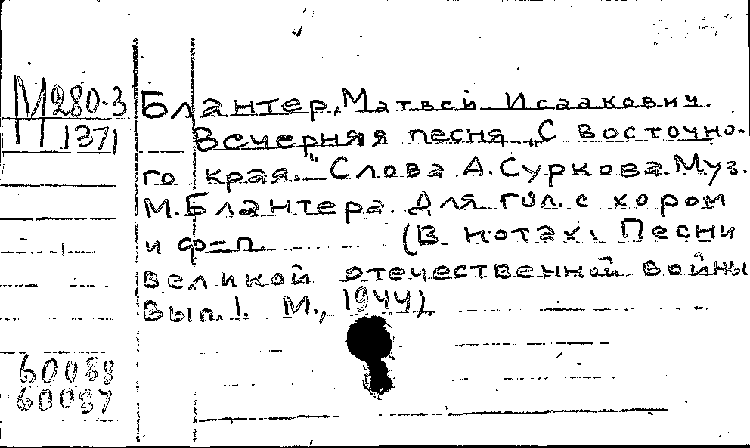 М280-3
1371
Блантер, Матвей Исаакович.
Вечерняя песня „С восточно-
го края." Слова А.Суркова. Муз.
М.Блантера. Для гол. с хором
и ф-п. (В нотах: Песни
великой отечественной войны
Вып.1. М., 1944)
60088
60087